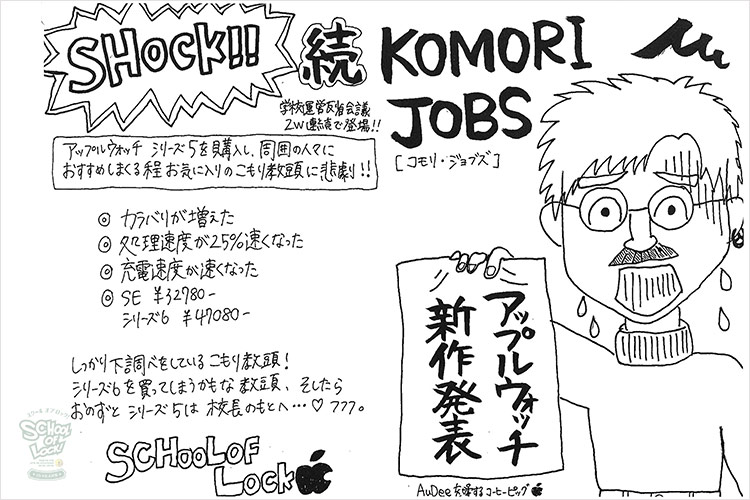 SHOCK!!
続
KOMORI
JOBS
[コモリ・ジョブズ]
学校運営反省会議
2W連続で登場!!
アップルウォッチ シリーズ5を購入し、周囲の人々に
おすすめしまくる程お気に入りのこもり教頭に悲劇!!
◎ カラバリが増えた
◎ 処理速度が25%速くなった
◎ 充電速度が速くなった
◎ SE ¥32780-
シリーズ6 ¥47080-
しっかり下調べをしているこもり教頭!
シリーズ6を買ってしまうかもな教頭、そしたら
おのずとシリーズ5は校長のもとへ…♡フフフ。
SCHOOL OF
LOCK
アップルウォッチ
新作発表
AuDeeを
するコーヒーピッグ
SCHOOL
OF
LOCK!